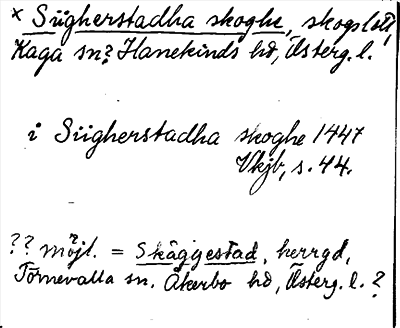 × Siigherstadha skoghe, skogslott,
Kaga sn? Hanekinds hd, Österg. l.
i Siigherstadha skoghe 1447
Vkjb, s. 44.
?? möjl. = Skäggestad, herrgd,
Törnevalla sn. Åkerbo hd, Österg. l. ?